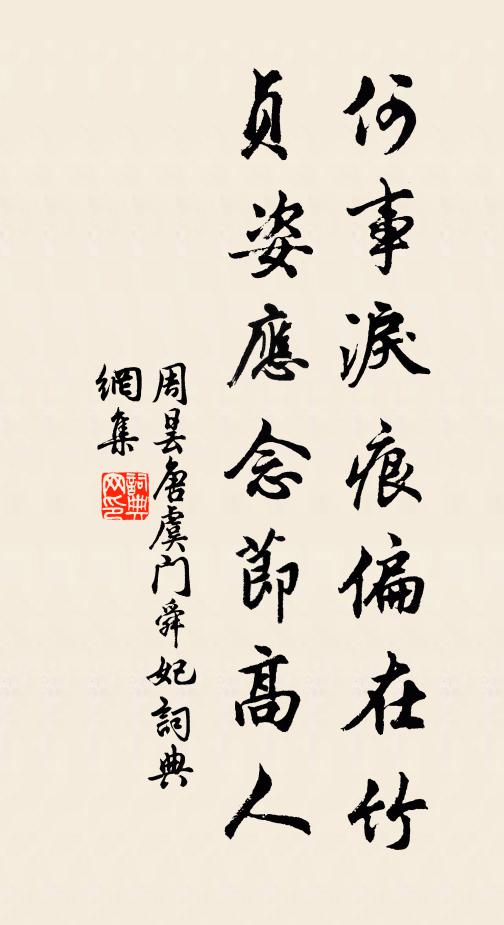 何事淚痕偏在竹
貞姿應念節高人
周曇唐虞門舜妃詞典
網集
詞典
网印